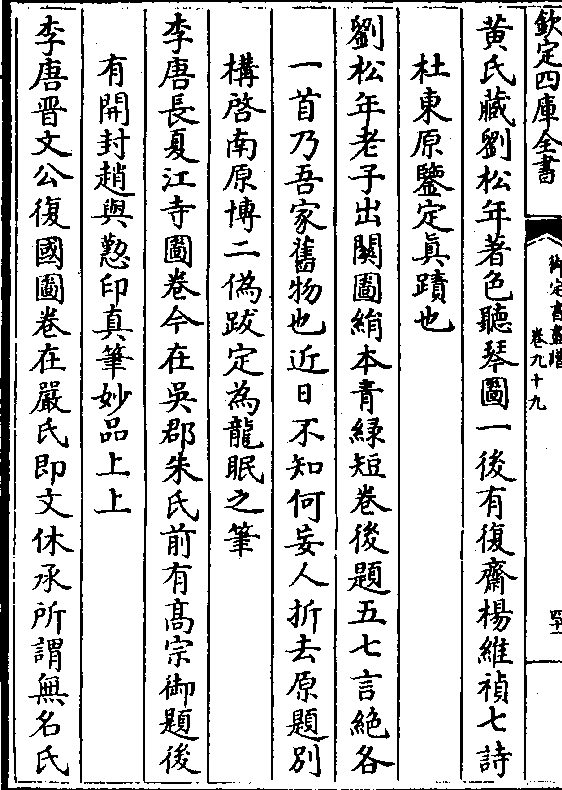 欽定四庫全書
御定書畫譜
卷九十九
四十一
黃氏藏劉松年著色聽琴圖一後有復齋楊維禎七詩
杜東原鑒定真蹟也
劉松年老子出關圖絹本青緑短卷後題五七言絶各
一首乃吾家舊物也近日不知何妄人折去原題别
構啓南原博二偽跋定為龍眠之筆
李唐長夏江寺圖卷今在吳郡朱氏前有髙宗御題後
有開封趙與懃印真筆妙品上上
李唐晋文公復國圖卷在嚴氏即文休承所謂無名氏